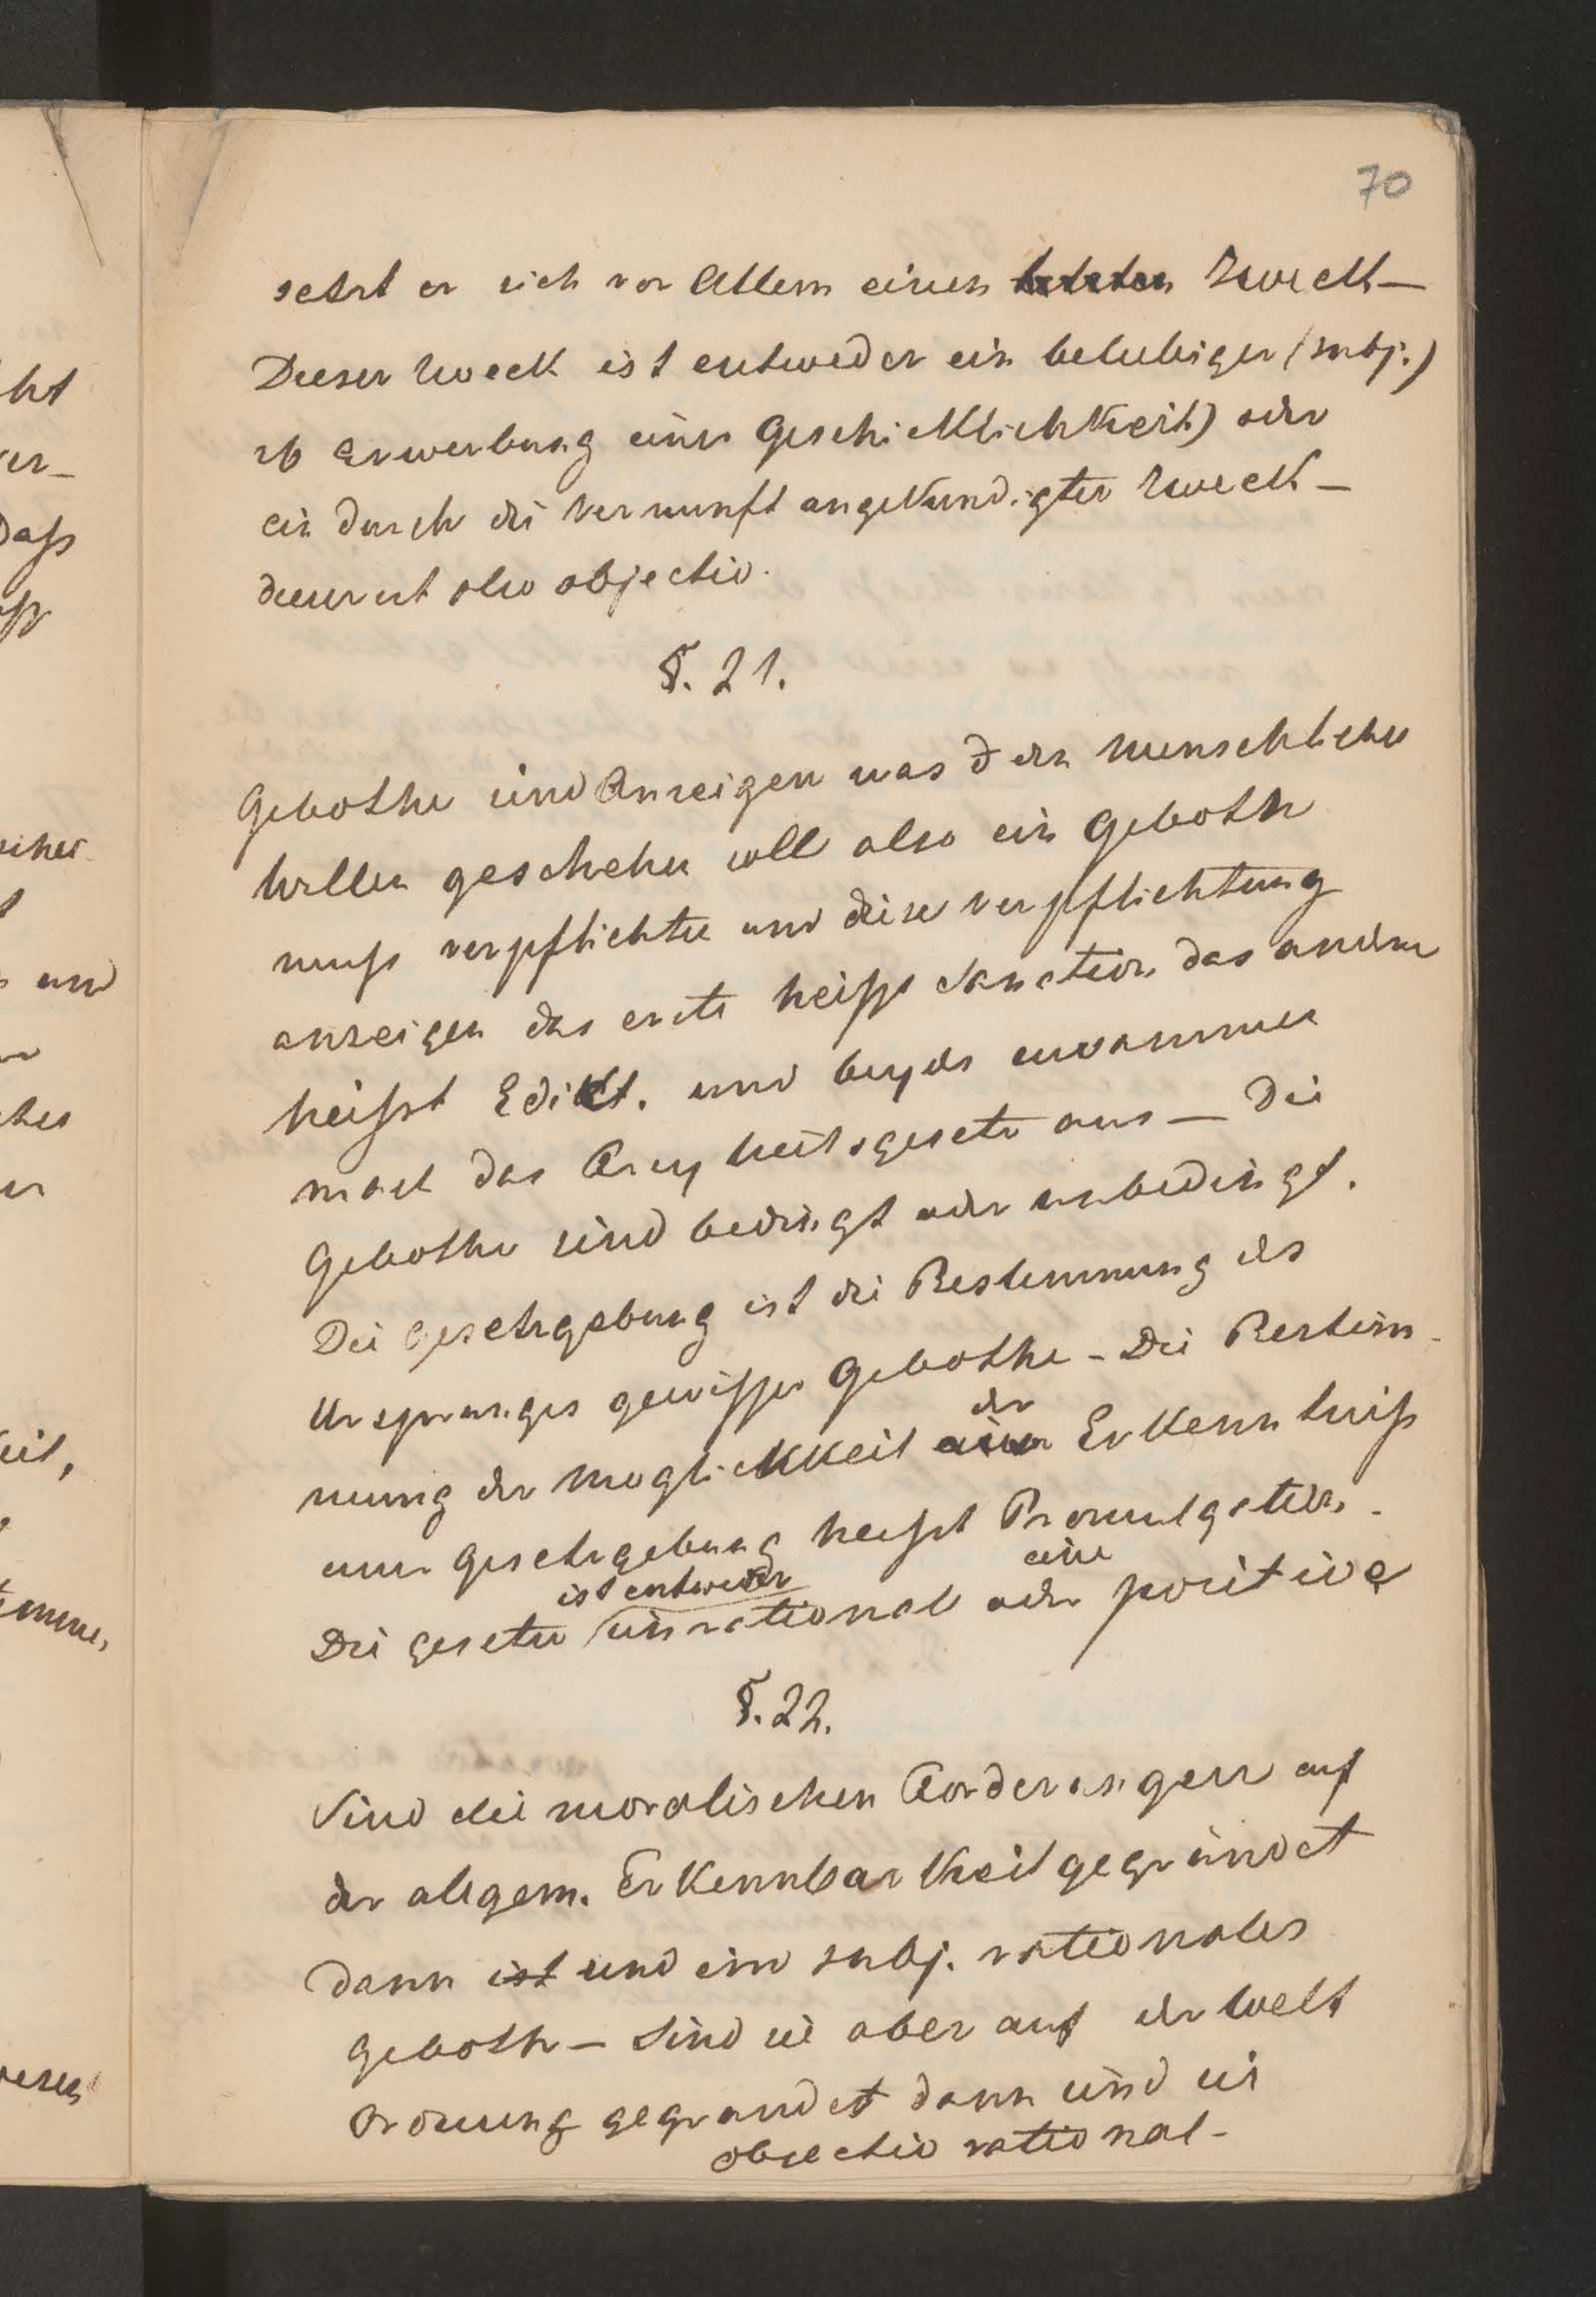 70
setzt er sich vor Allem einen letzten Zweck —
Dieser Zweck ist entweder ein beliebiger (subj.)
zb Erwerbung einer Geschicklichkeit) oder
ein durch die Vernunft angekundigter Zweck —
dieser ist also objectiv.
§. 21.
Gebothe sind Anzeigen was d den menschlichen
Willen geschehen soll also ein Geboth
muss verpflichten und diese Verpflichtung
anzeigen das erste heisst Sanction das andere
heisst Edikt. und beydes zusammen
macht das Freyheitsgesetz aus — Die
Gebothe sind bedingt oder unbedingt.
Die Gesetzgebung ist die Bestimmung des
Ursprunges gewisser Gebothe - Die Bestim-
mung der Moglichkkeit der Erkenntniss
einer Gesetzgebung heisst Promulgation.
Die Gesetze ist entweder ein rational oder eine positive
§. 22.
Sind die moralischen Forderungen auf
der allgem. Erkennbarkeit gegründet
dann ist sind sind subj. rationales
Geboth — Sind sie aber auf der Welt
Ordnung gegrundet dann sind sie
objectiv rational -
ht
er-
Dass
und
ches
eit,